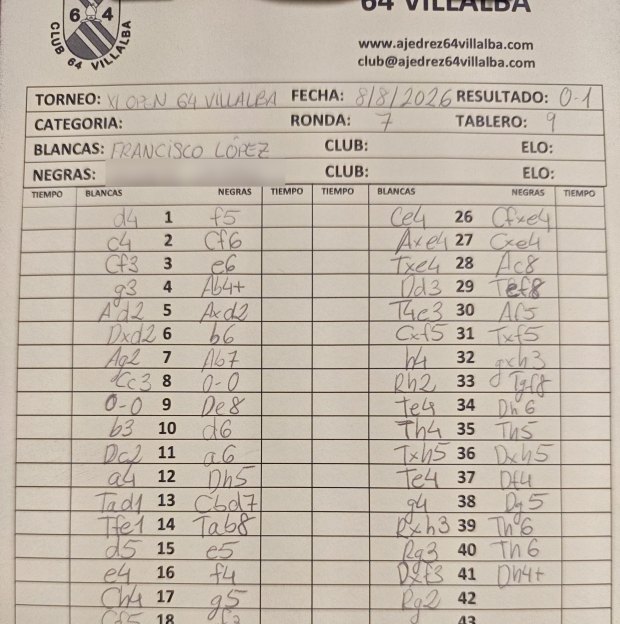 64 VILLALBA
6 4
CLUB 64 VILLALBA
www.ajedrez64villalba.com
club@ajedrez64villalba.com
TORNEO: XI OPEN 64 VILLALBA FECHA: 8/8/2026 RESULTADO: 0-1
CATEGORIA: RONDA: 7 TABLERO: 9
BLANCAS: FRANCISCO LÓPEZ CLUB: ELO:
NEGRAS: CLUB: ELO:
TIEMPO BLANCAS NEGRAS TIEMPO TIEMPO BLANCAS NEGRAS TIEMPO
d4 1 f5 Ce4 26 Cfxe4
c4 2 Cf6 Axe4 27 Cxe4
Cf3 3 e6 Txe4 28 Ac8
g3 4 Ab4+ Dd3 29 Tef8
Ad2 5 Axd2 T4e3 30 Af5
Dxd2 6 b6 Cxf5 31 Txf5
Ag2 7 Ab7 h4 32 gxh3
Cc3 8 0-0 Rh2 33 Tgf8
0-0 9 De8 Te4 34 Dh6
b3 10 d6 Th4 35 Th5
Dc2 11 a6 Txh5 36 Dxh5
a4 12 Dh5 Te4 37 Df4
Tad1 13 Cbd7 g4 38 Dg5
Tfe1 14 Tab8 Rxh3 39 Th6
d5 15 e5 Rg3 40 Th6
e4 16 f4 Dxf3 41 Dh4+
Ch4 17 g5 Rg2 42
Cf5 18 43